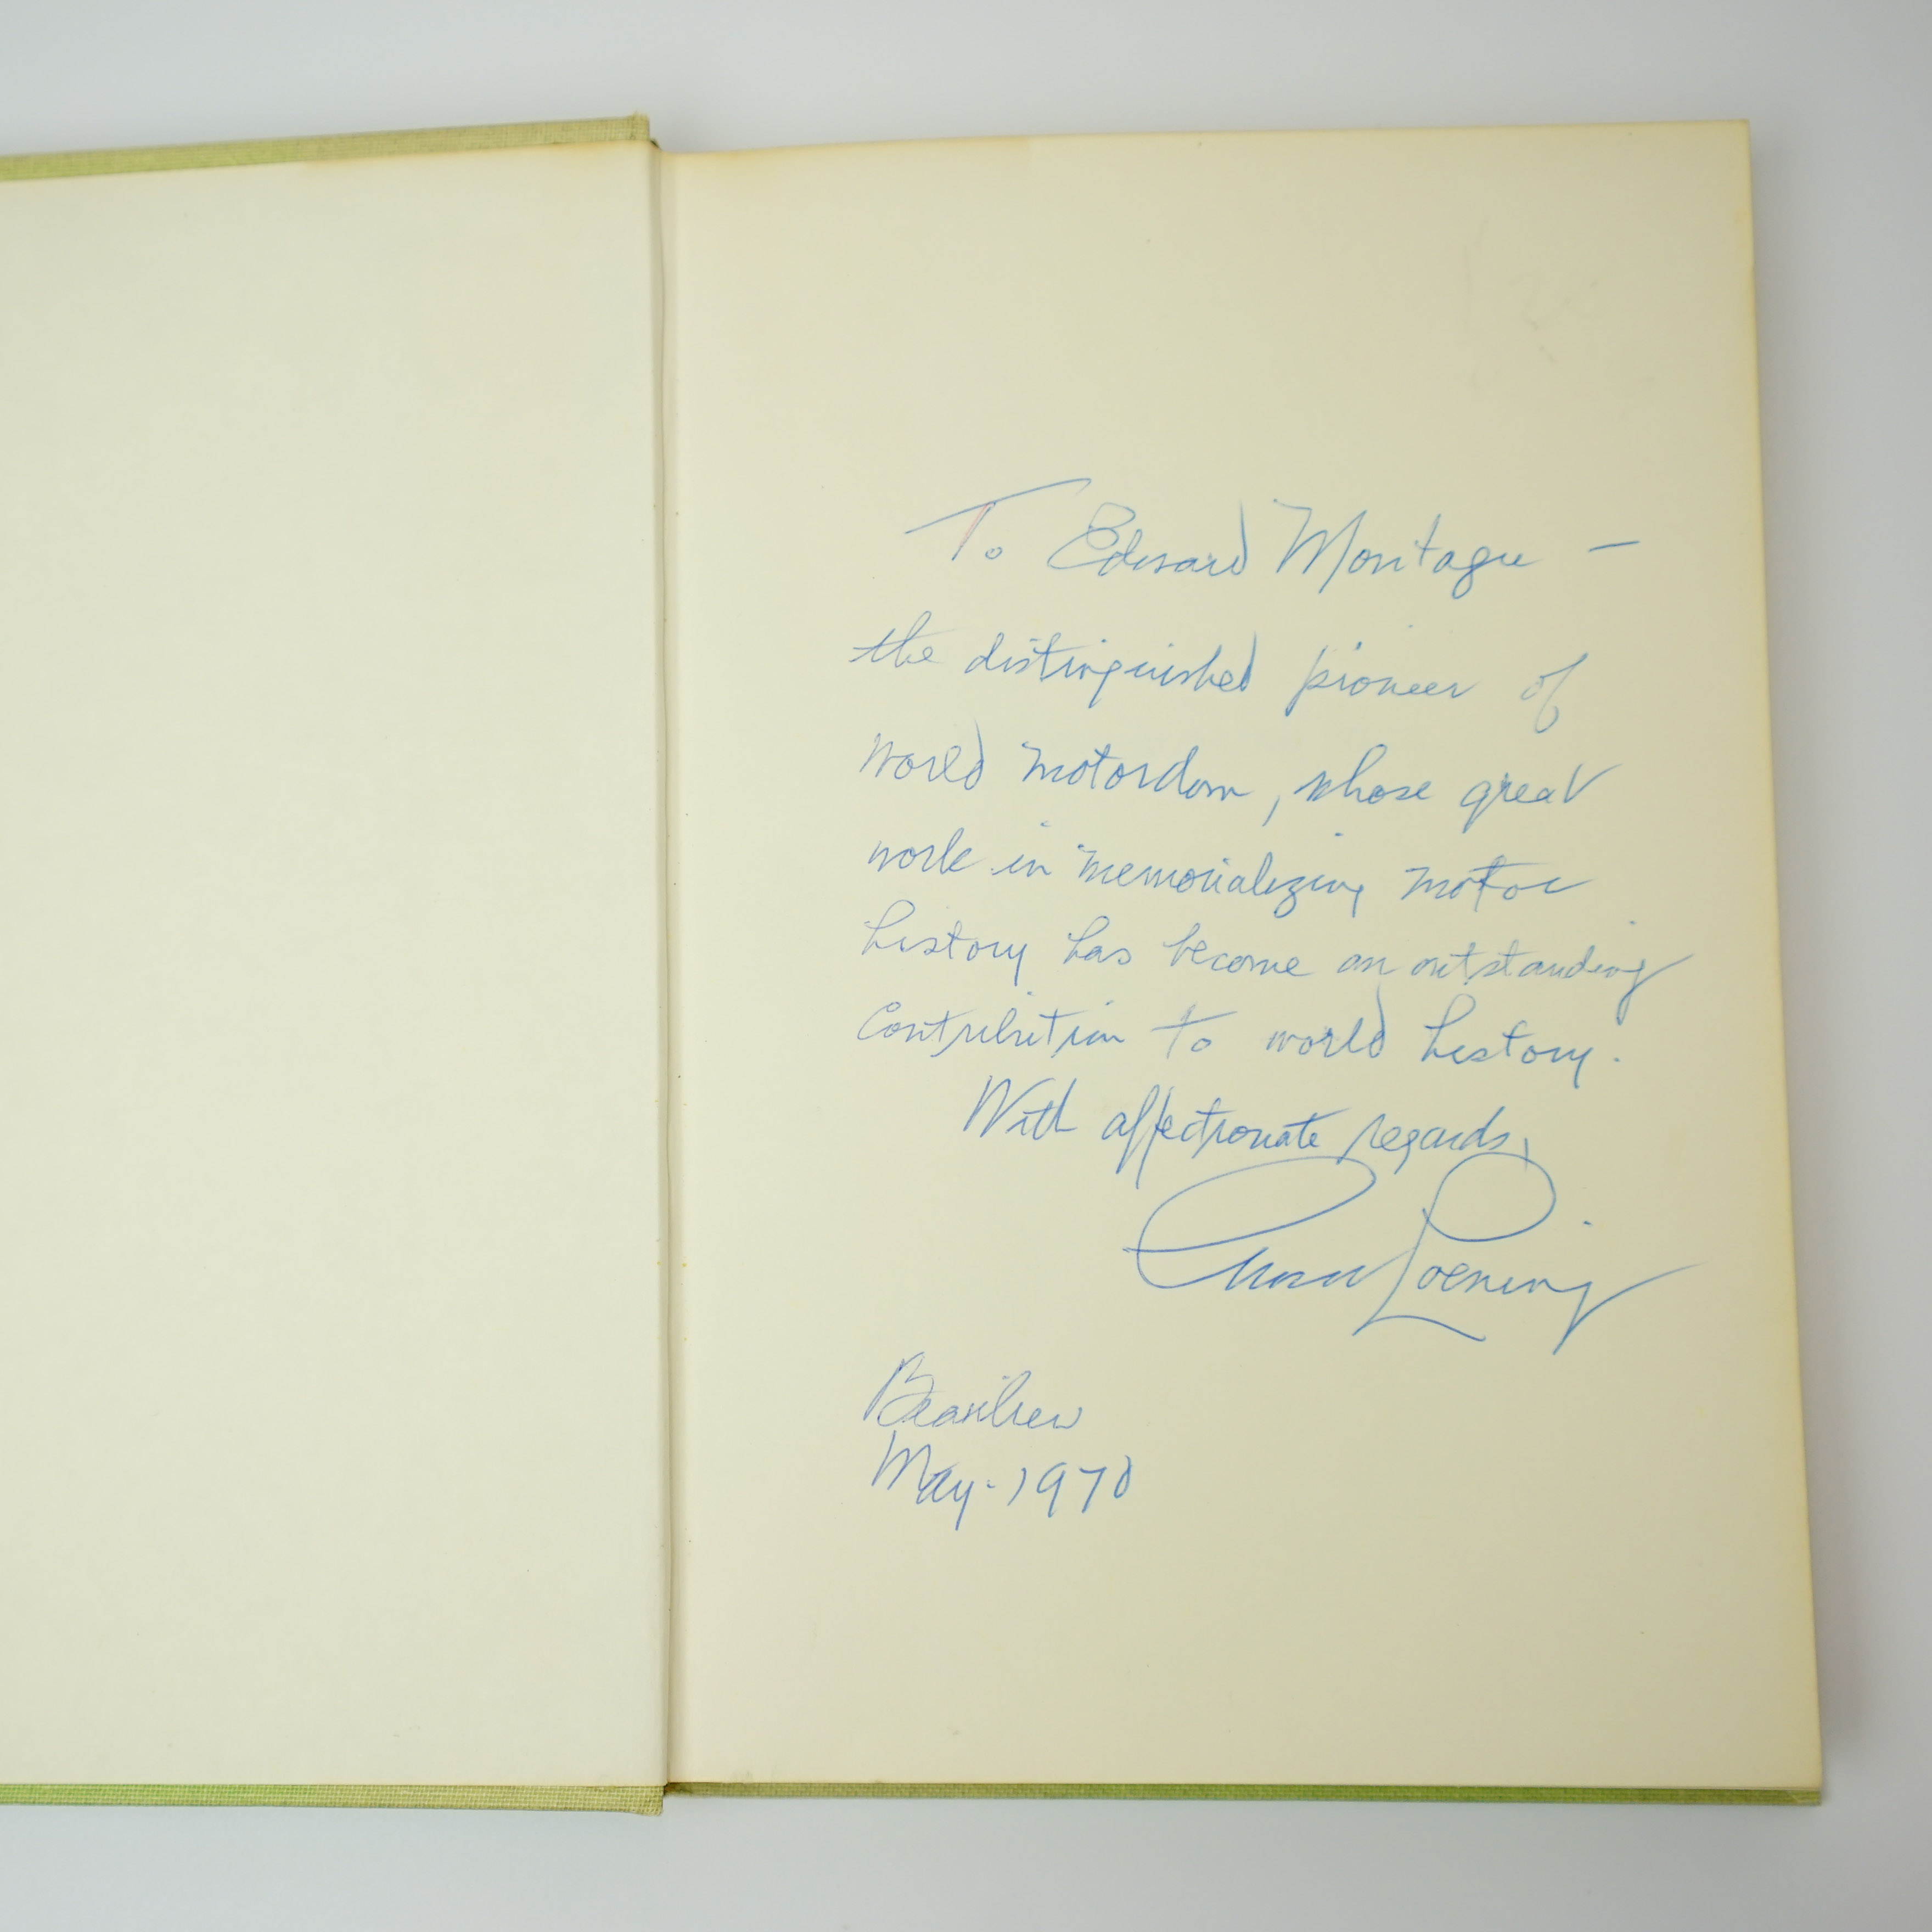 To Edward Montagu —
the distinguished pioneer of
world motordom, whose great
work in memorializing motor
history has become an outstanding
Contribution to world history.
With affectionate regards,
Grover Loening
Beaulieu
May - 1970